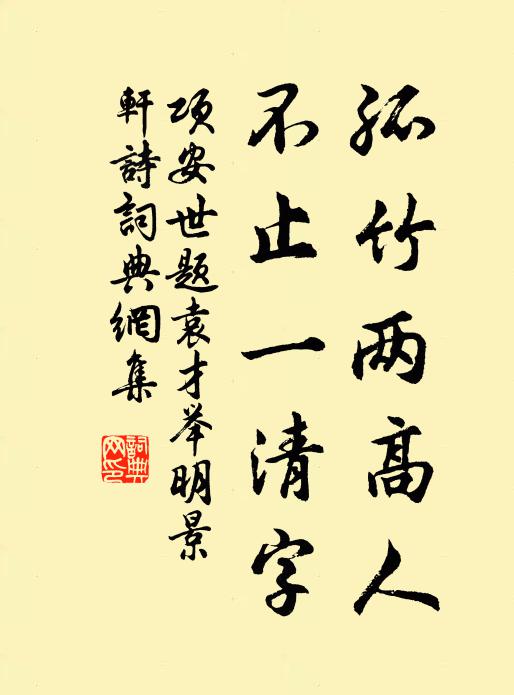 孤竹两高人
不止一清字
项安世题袁才举明景
轩詩詞典網集
詞典网印